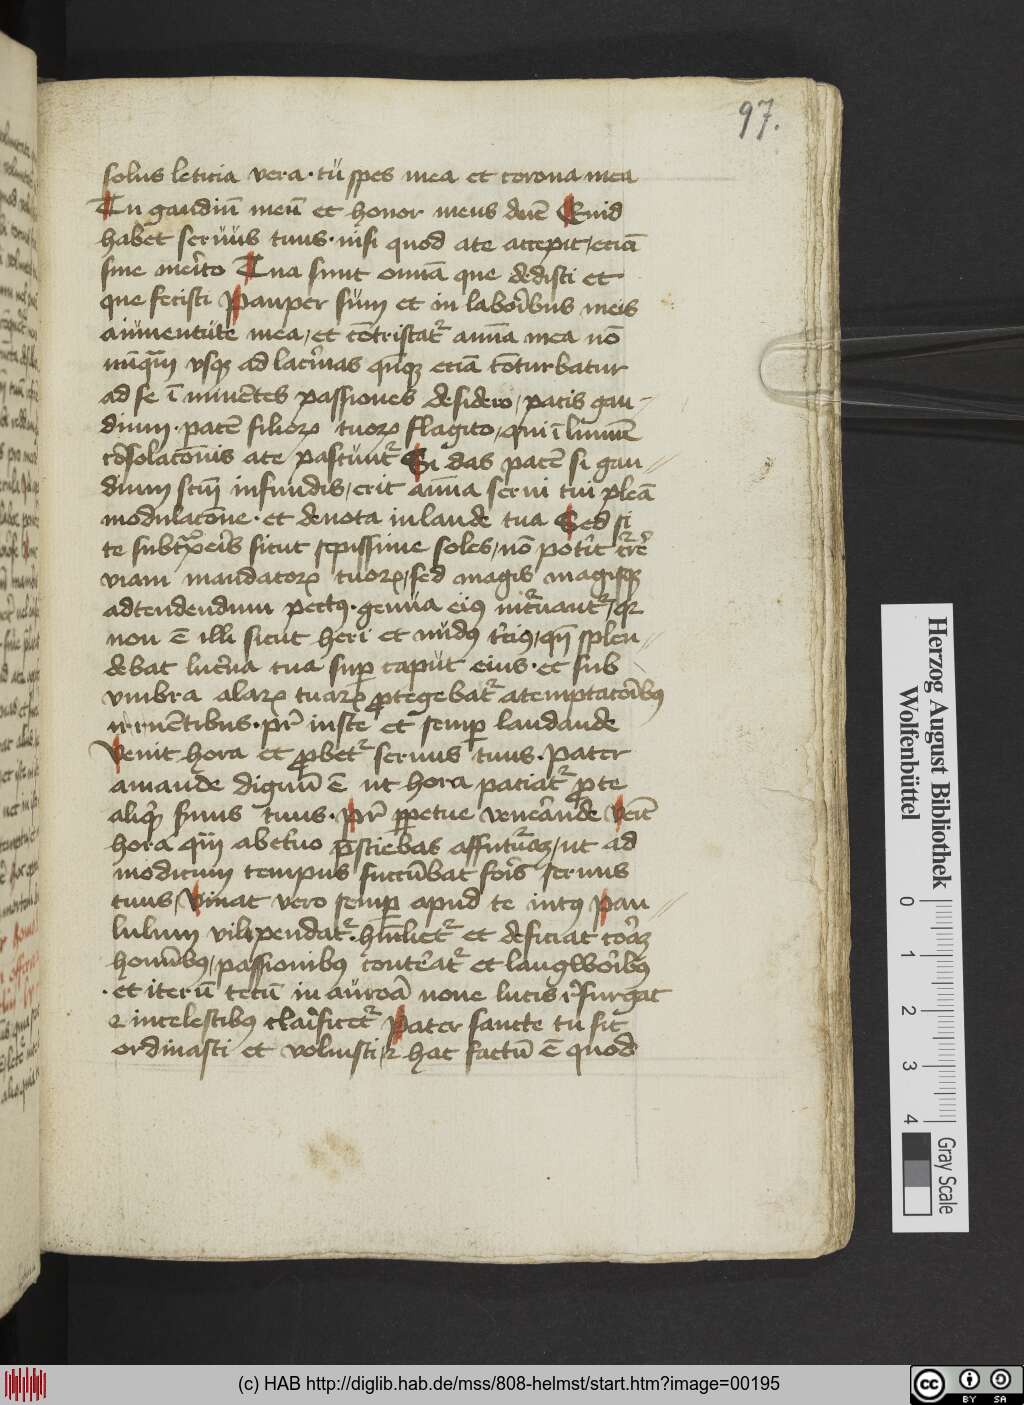 97.
solus leticia vera · tu spes mea et corona mea
Tu gaudiū meū et honor meus dn̄e Quid
habet seruus tuus · nisi quod a te accepit / eciā
sine merito Tua sunt omīa que dedisti et
que fecisti Pauper sum et in laboribus meis
a iuuentute mea / et cōtristatr aīma mea nō
nūqm̄ vsqꝫ ad lacrimas quoqꝫ eciā cōturbatur
ad se ī minētes passiones desidero / pacis gau-
dium · pacē filioꝝ tuoꝝ flagito / qui ī lumīe
cōsolacōnis a te pascūtr Si das pacē si gau//
dium scm̄ infundis / erit aīma serui tui plēa
modulacōne · et deuota in laude tua Sed si
te subtxeris sicut sepissime soles / nō potit c̄rē
viam mandatoꝝ tuoꝝ / sed magis magisqꝫ
ad tendendum pectꝰ · genua eiꝰ incuāntr / qꝛ
non ē illi sicut heri et nudꝰ tciꝰ / qn̄ splen-
debat lucēna tua sup caput eius · et sub
vmbra alaꝝ tuaꝝ ꝓtegebatr a temptacōibꝰ
irruētibus · pr̄ iuste et semp laudande
Venit hora et ꝓbetr seruus tuus · Pater
amande dignū ē ut hora paciatr ꝓ te
aliqͥd seruus tuus · Pr̄ ppetue venerāde Venit
hora qm̄ ab et'no p̄sciebas affuturaꝫ / ut ad
modicum tempus succūbat foris seruus
tuus / Viuat vero semp apud te intꝰ Pau//
lulum vilipendatr · humlietr et deficiat corāꝫ
hominibꝰ / passionibꝰ conteratr et langworibꝰ
· et iterū tecū in aurora noue lucis resurgat
⁊ in celestibꝰ clarificetr Pater sancte tu sic
ordinasti et voluisti / ⁊ hoc factū ē quod
Herzog August Bibliothek
Wolfenbüttel
0 1 2 3 4
Gray Scale
(c) HAB http://diglib.hab.de/mss/808-helmst/start.htm?image=00195
cc BY SA